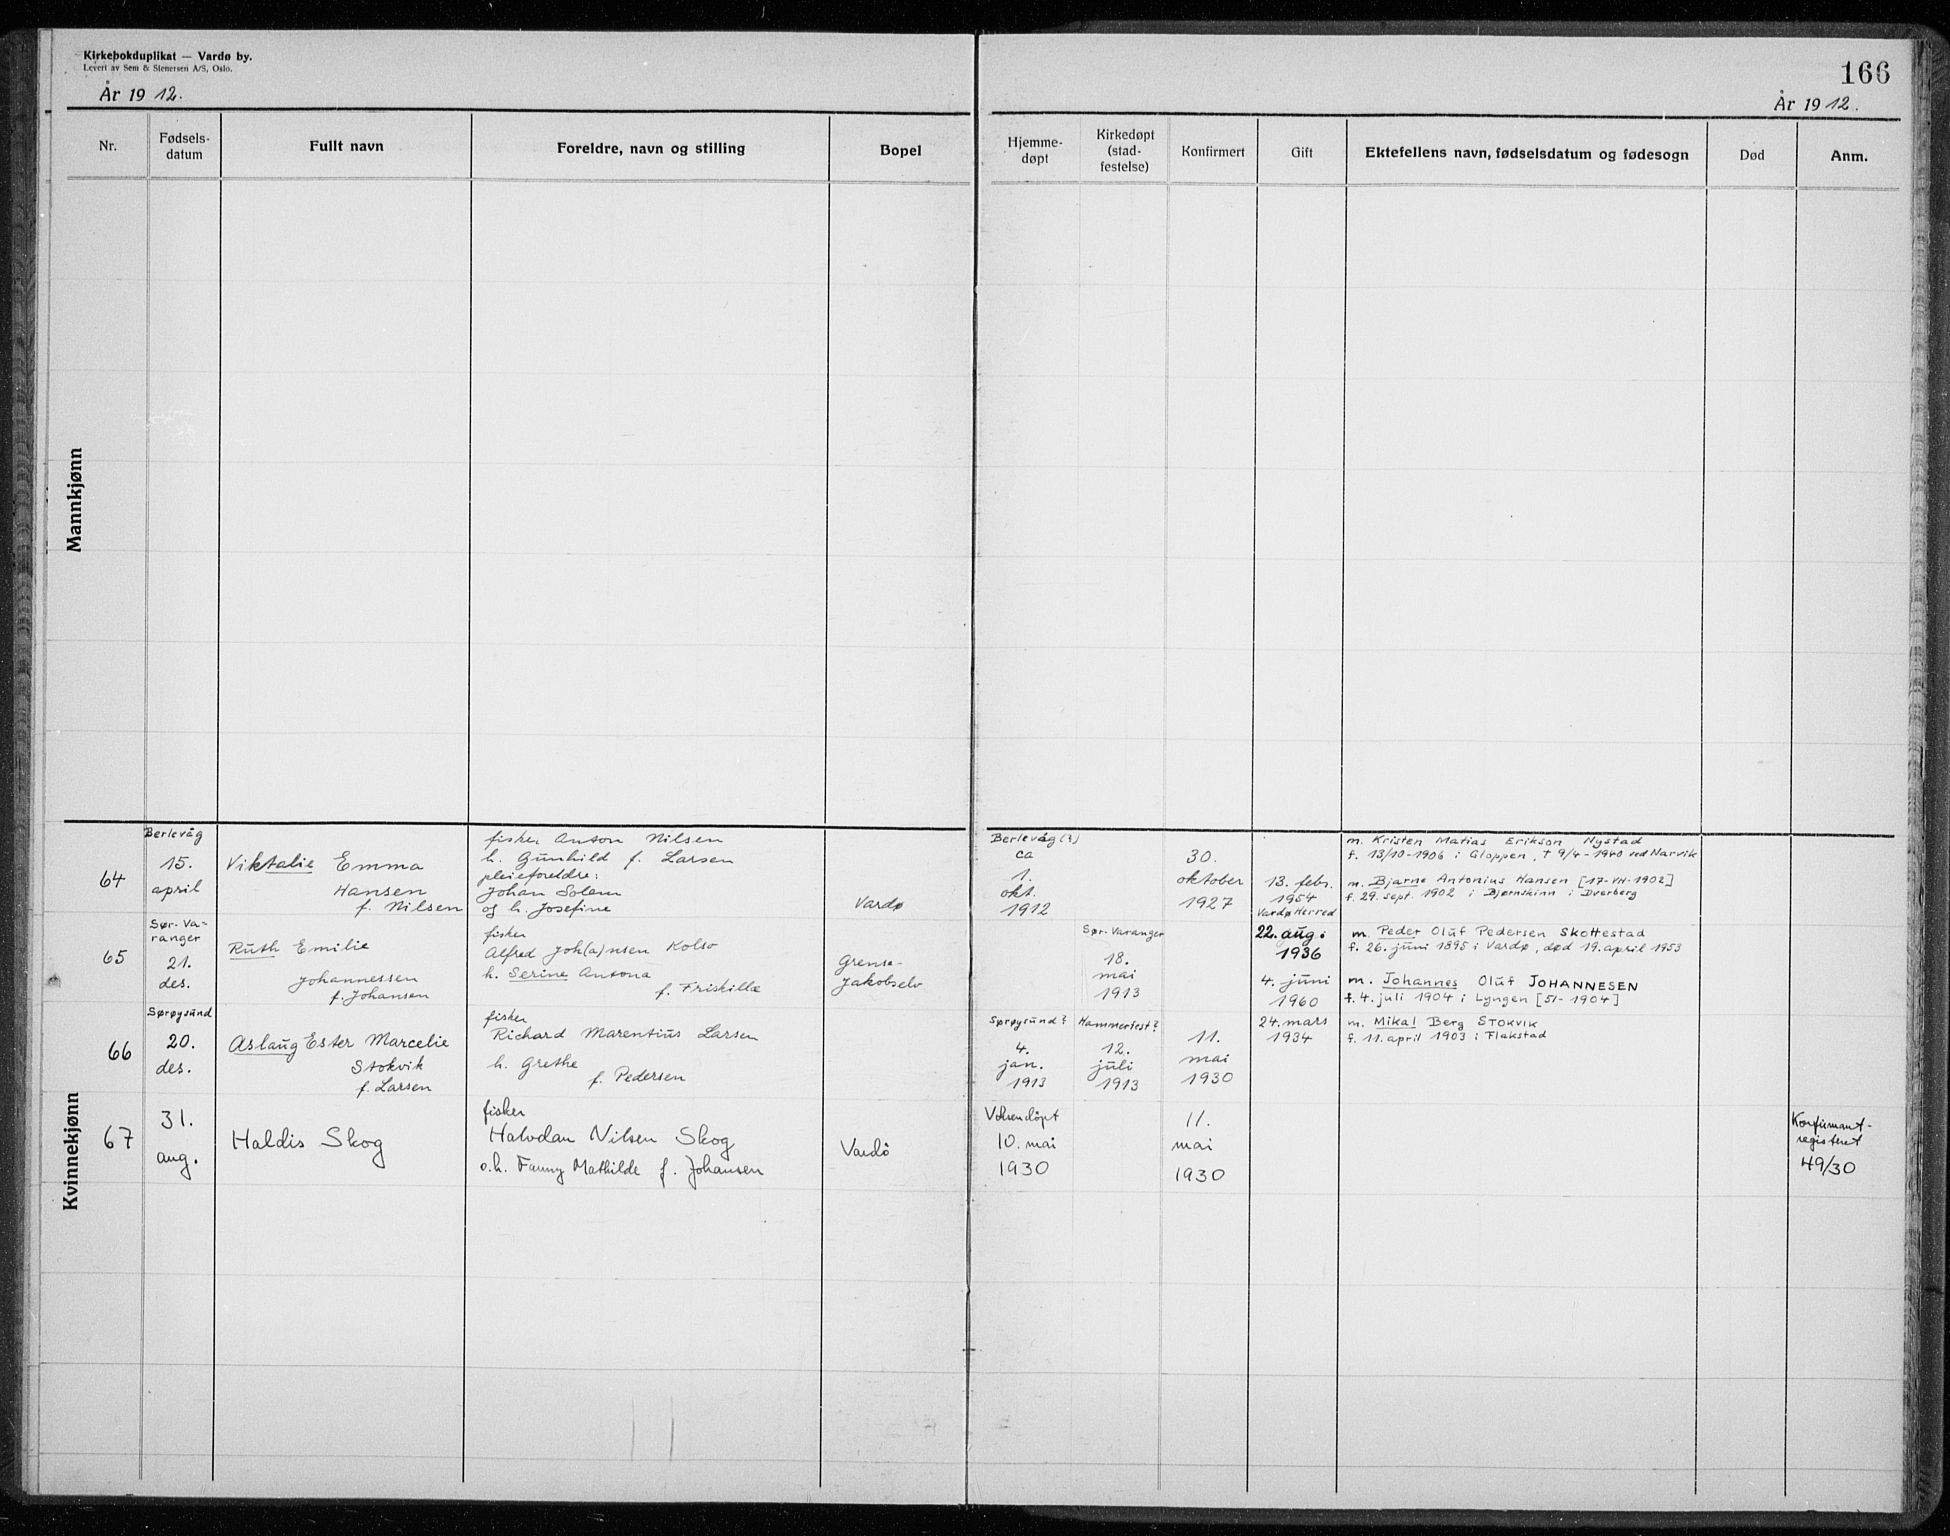 Kirkebokduplikat — Vardø by.
Levert av Sem & Stenersen A/S, Oslo.
År 1912.
166
År 1912.
Nr.
Fødsels-
datum
Fullt navn
Foreldre, navn og stilling
Bopel
Hjemme-
døpt
Kirkedøpt
(stad-
festelse)
Konfirmert
Gift
Ektefellens navn, fødselsdatum og fødesogn
Død
Anm.
Mannkjønn
Kvinnekjønn
64
Berlevåg
15.
april
Viktalie Emma
Hansen
f. Nilsen
fisker Anton Nilsen
h. Gunhild f. Larsen
pleieforeldre:
Johan Solem
og h. Josefine
Vardø
Berlevåg (?)
ca
1.
okt.
1912
30.
oktober
1927
13. febr.
1954
Vardø Herred
m. Kristen Matias Erikson Nystad
f. 13/10-1906 i Gloppen, † 9/4-1940 ved Narvik
m. Bjarne Antonius Hansen [17-VH-1902]
f. 29. sept. 1902 i Bjørnskinn i Dverberg
65
Sør-Va-
ranger
21.
des.
Ruth Emilie
Johannessen
f. Johansen
fisker
Alfred Joh(a)nsen Kolso
h. Serine Antona
f. Friskillæ
Grense-
Jakobselv
Sør-Varanger
18.
mai
1913
22. aug.
1936
4. juni
1960
m. Peder Oluf Pedersen Skottestad
f. 26. juni 1895 i Vardø, død 19. april 1953
m. Johannes Oluf JOHANNESEN
f. 4. juli 1904 i Lyngen [51-1904]
66
Sørøysund
20.
des.
Aslaug Ester Marcelie
Stokvik
f. Larsen
fisker
Richard Marentius Larsen
h. Grethe
f. Pedersen
Sørøysund?
4.
jan.
1913
Hammerfest?
12.
juli
1913
11.
mai
1930
24. mars
1934
m. Mikal Berg STOKVIK
f. 11. april 1903 i Flakstad
67
31.
aug.
Haldis Skog
fisker
Halvdan Nilsen Skog
o.h. Fanny Mathilde f. Johansen
Vardö
Voksendöpt
10. mai
1930
11.
mai
1930
Konfirmant-
registeret
49/30